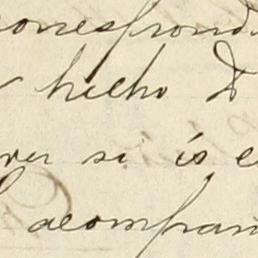 correspond
hecho D
ver si is e
acompan